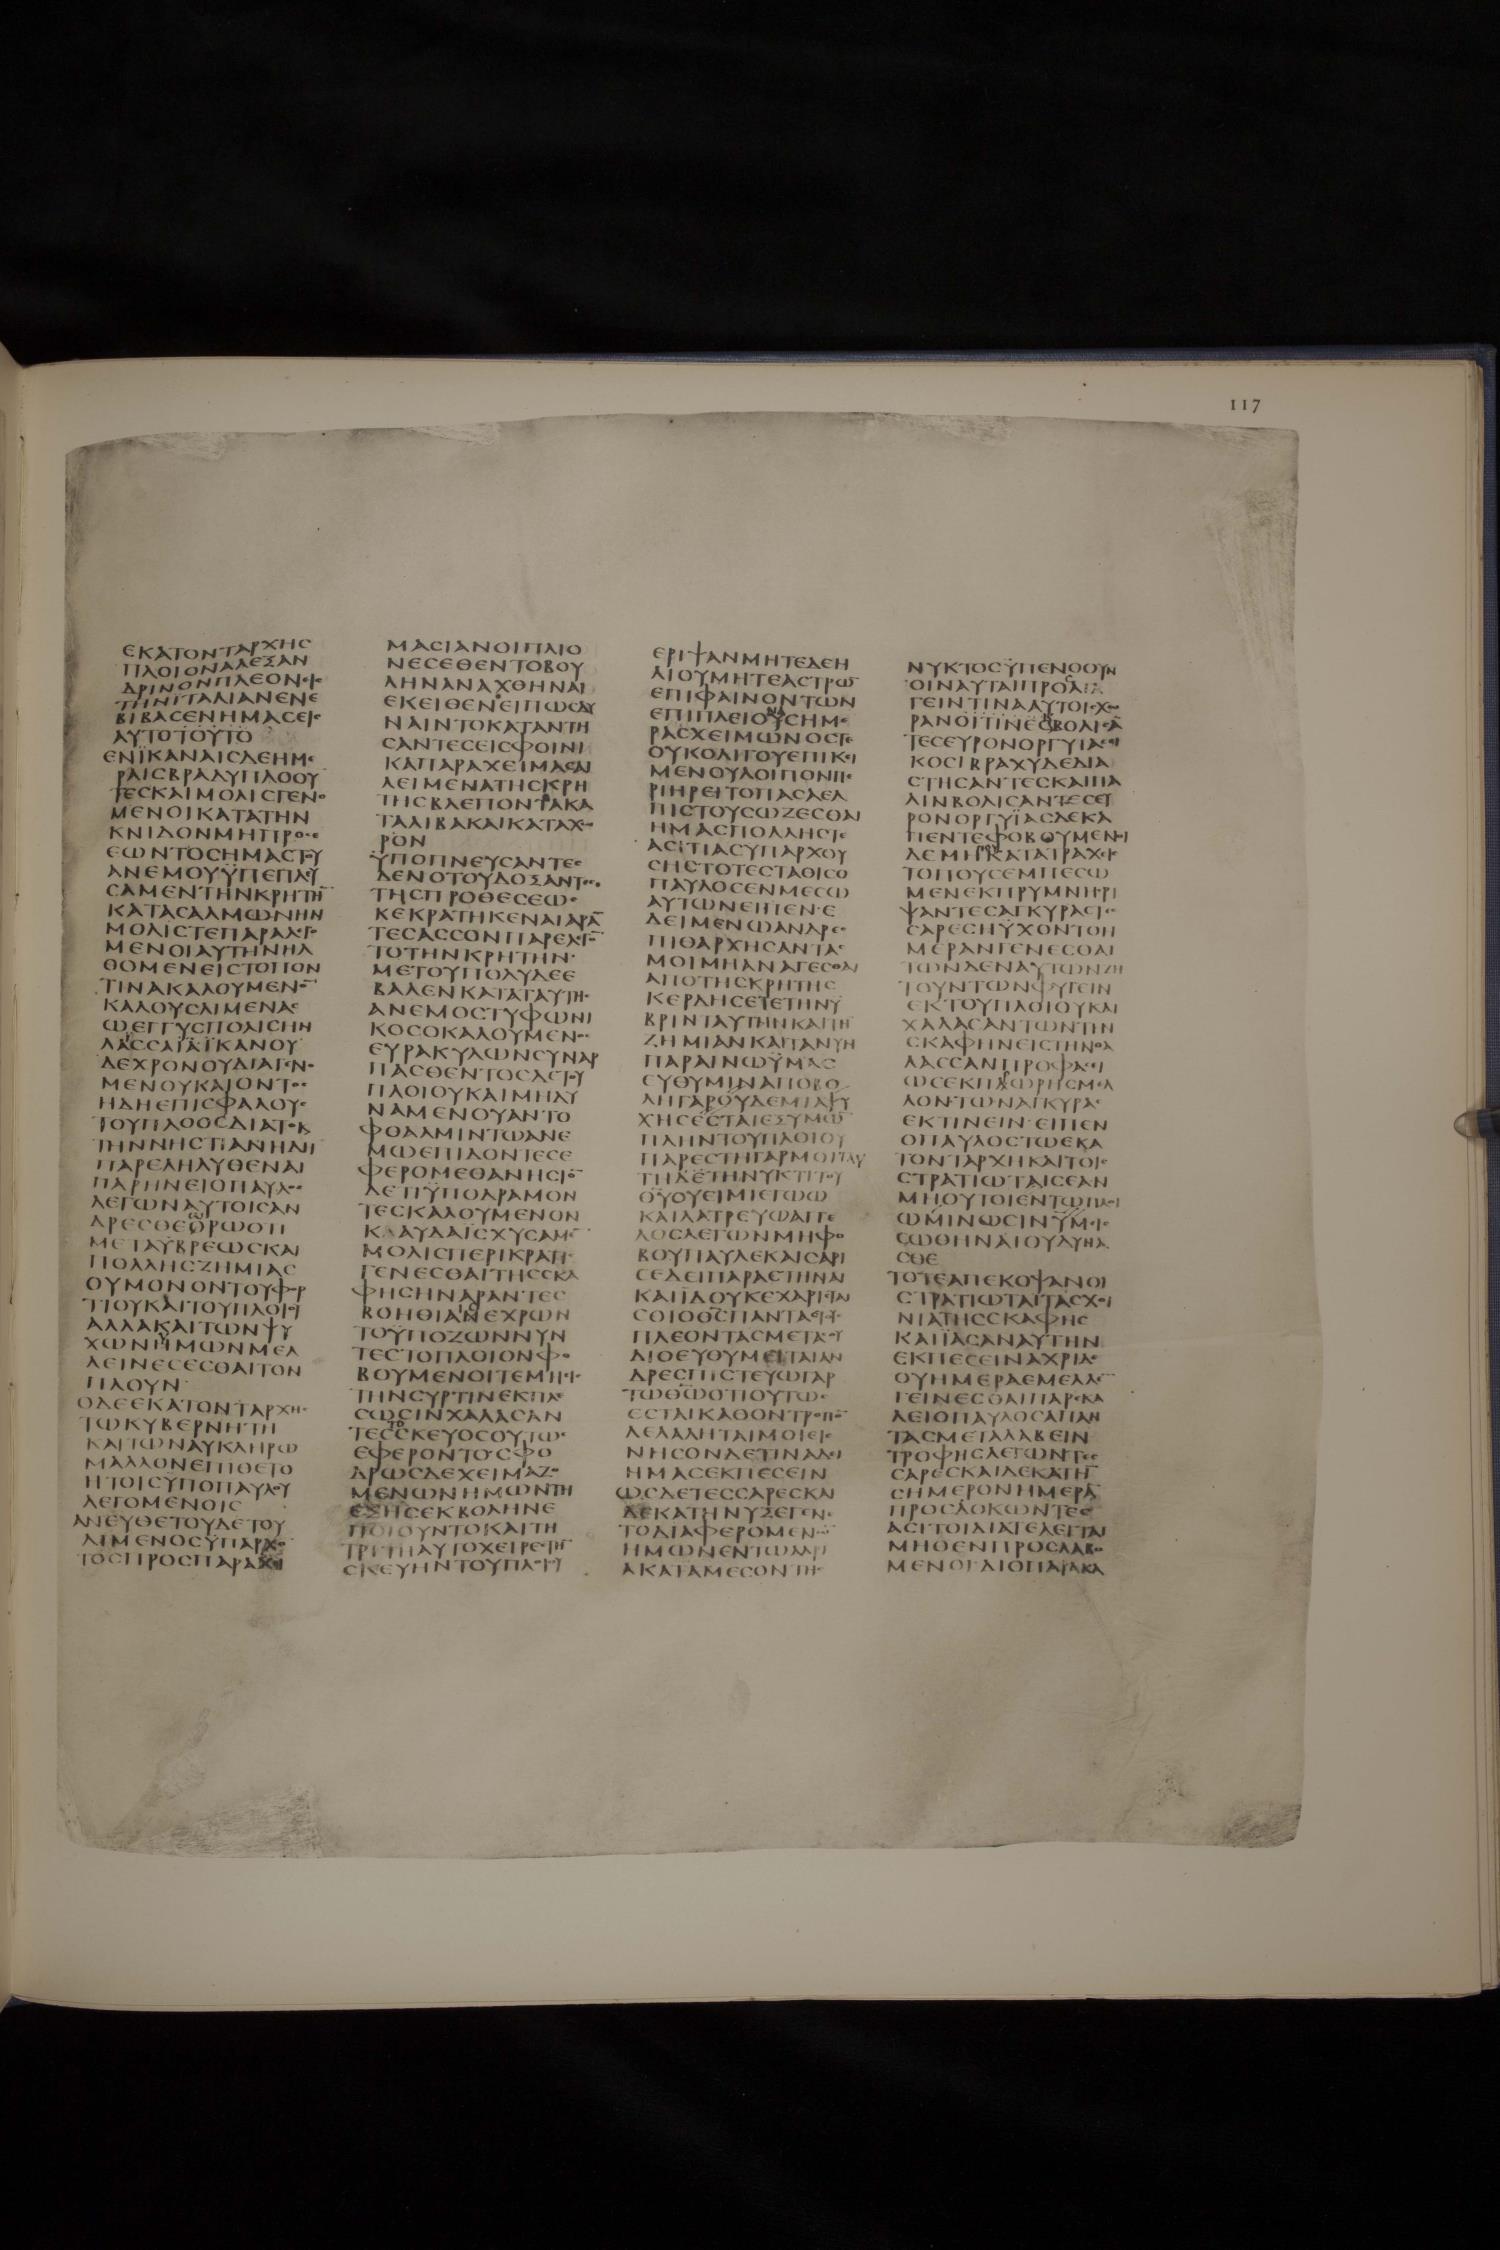 117
ΕΚΑΤΟΝΤΑΡΧΗϹ
ΠΛΟΙΟΝΑΛΕΞΑΝ
ΔΡΙΝΟΝΠΛΕΟΝΕΙϹ
ΤΗΝΙΤΑΛΙΑΝΕΝΕ
ΒΙΒΑϹΕΝΗΜΑϹΕΙϹ
ΑΥΤΟΤΟΥΤΟ
ΕΝΪΚΑΝΑΙϹΔΕΗΜΕ
ΡΑΙϹΒΡΑΔΥΠΛΟΟΥ
ΤΕϹΚΑΙΜΟΛΙϹΓΕΝΟ
ΜΕΝΟΙΚΑΤΑΤΗΝ
ΚΝΙΔΟΝΜΗΠΡΟϹ
ΕΩΝΤΟϹΗΜΑϹΤΟΥ
ΑΝΕΜΟΥΫΠΕΠΛΕΥ
ϹΑΜΕΝΤΗΝΚΡΗΤΗ̅
ΚΑΤΑϹΑΛΜΩΝΗΝ
ΜΟΛΙϹΤΕΠΑΡΑΛΕΓΟ
ΜΕΝΟΙΑΥΤΗΝΗΛ
ΘΟΜΕΝΕΙϹΤΟΠΟΝ
ΤΙΝΑΚΑΛΟΥΜΕΝΟ̅
ΚΑΛΟΥϹΛΙΜΕΝΑϹ
ΩΕΓΓΥϹΠΟΛΙϹΗΝ
ΛΑϹϹΑΪΑΪΚΑΝΟΥ
ΔΕΧΡΟΝΟΥΔΙΑΓΕΝΟ
ΜΕΝΟΥΚΑΙΟΝΤΟϹ
ΗΔΗΕΠΙϹΦΑΛΟΥϹ
ΤΟΥΠΛΟΟϹΔΙΑΤΟΚΑΙ
ΤΗΝΝΗϹΤΙΑΝΗΔΗ
ΠΑΡΕΛΗΛΥΘΕΝΑΙ
ΠΑΡΗΝΕΙΟΠΑΥΛΟϹ
ΛΕΓΩΝΑΥΤΟΙϹΑΝ
ΔΡΕϹΘΕΟΡΩΟΤΙ
ΜΕΤΑΫΒΡΕΩϹΚΑΙ
ΠΟΛΛΗϹΖΗΜΙΑϹ
ΟΥΜΟΝΟΝΤΟΥΦΟΡ
ΤΙΟΥΚΑΙΤΟΥΠΛΟΙΟΥ
ΑΛΛΑΚΑΙΤΩΝΨΥ
ΧΩΝΗΜΩΝΜΕΛ
ΛΕΙΝΕϹΕϹΘΑΙΤΟΝ
ΠΛΟΥΝ
ΟΔΕΕΚΑΤΟΝΤΑΡΧΗϹ
ΤΩΚΥΒΕΡΝΗΤΗ
ΚΑΙΤΩΝΑΥΚΛΗΡΩ
ΜΑΛΛΟΝΕΠΙΘΕΤΟ
ΗΤΟΙϹΫΠΟΠΑΥΛΟΥ
ΛΕΓΟΜΕΝΟΙϹ
ΑΝΕΥΘΕΤΟΥΔΕΤΟΥ
ΛΙΜΕΝΟϹΫΠΑΡΧΟ
ΤΟϹΠΡΟϹΠΑΡΑΧΙ
ΜΑϹΙΑΝΟΙΠΛΙΟ
ΝΕϹΕΘΕΝΤΟΒΟΥ
ΛΗΝΑΝΑΧΘΗΝΑΙ
ΕΚΕΙΘΕΝΕΙΠΩϹΔΥ
ΝΑΙΝΤΟΚΑΤΑΝΤΗ
ϹΑΝΤΕϹΕΙϹΦΟΙΝΙ
ΚΑΠΑΡΑΧΕΙΜΑϹΑΙ
ΛΕΙΜΕΝΑΤΗϹΚΡΗ
ΤΗϹΒΛΕΠΟΝΤΑΚΑ
ΤΑΛΙΒΑΚΑΙΚΑΤΑΧΩ
ΡΟΝ
ΫΠΟΠΝΕΥϹΑΝΤΕϹ
ΔΕΝΟΤΟΥΔΟΞΑΝΤΕϹ
ΤΗϹΠΡΟΘΕϹΕΩϹ
ΚΕΚΡΑΤΗΚΕΝΑΙΑΡΑ̅
ΤΕϹΑϹϹΟΝΠΑΡΕΛΕΓΟ̅
ΤΟΤΗΝΚΡΗΤΗΝ
ΜΕΤΟΥΠΟΛΥΔΕΕ
ΒΑΛΕΝΚΑΤΑΤΑΥΤΗϹ
ΑΝΕΜΟϹΤΥΦΩΝΙ
ΚΟϹΟΚΑΛΟΥΜΕΝΟϹ
ΕΥΡΑΚΥΛΩΝϹΥΝΑΡ
ΠΑϹΘΕΝΤΟϹΔΕΤΟΥ
ΠΛΟΙΟΥΚΑΙΜΗΔΥ
ΝΑΜΕΝΟΥΑΝΤΟ
ΦΘΑΛΜΙΝΤΩΑΝΕ
ΜΩΕΠΙΔΟΝΤΕϹΕ
ΦΕΡΟΜΕΘΑΝΗϹΙΟ̅
ΔΕΤΙΫΠΟΔΡΑΜΟΝ
ΤΕϹΚΑΛΟΥΜΕΝΟΝ
ΚΛΑΥΔΑΪϹΧΥϹΑΜΕ̅
ΜΟΛΙϹΠΕΡΙΚΡΑΤΕΙϹ
ΓΕΝΕϹΘΑΙΤΗϹϹΚΑ
ΦΗϹΗΝΑΡΑΝΤΕϹ
ΒΟΗΘΙΑΝΕΧΡΩΝ
ΤΟΫΠΟΖΩΝΝΥΝ
ΤΕϹΤΟΠΛΟΙΟΝΦΟ
ΒΟΥΜΕΝΟΙΤΕΜΗΕΙϹ
ΤΗΝϹΥΡΤΙΝΕΚΠΕ
ϹΩϹΙΝΧΑΛΑϹΑΝ
ΤΕϹϹΚΕΥΟϹΟΥΤΩϹ
ΕΦΕΡΟΝΤΟϹΦΟ
ΔΡΩϹΔΕΧΕΙΜΑΖΟ
ΜΕΝΩΝΗΜΩΝΤΗ
ΕΞΗϹΕΚΒΟΛΗΝΕ
ΠΟΙΟΥΝΤΟΚΑΙΤΗ
ΤΡΙΤΗΑΥΤΟΧΕΙΡΕϹΤΗ̅
ϹΚΕΥΗΝΤΟΥΠΛΟΙΟΥ
ΕΡΙΨΑΝΜΗΤΕΔΕΗ
ΛΙΟΥΜΗΤΕΑϹΤΡΩ̅
ΕΠΙΦΑΙΝΟΝΤΩΝ
ΕΠΙΠΛΕΙΟΥϹΗΜΕ
ΡΑϹΧΕΙΜΩΝΟϹΤΕ
ΟΥΚΟΛΙΓΟΥΕΠΙΚΕΙ
ΜΕΝΟΥΛΟΙΠΟΝΠΕ
ΡΙΗΡΕΙΤΟΠΑϹΑΕΛ
ΠΙϹΤΟΥϹΩΖΕϹΘΑΙ
ΗΜΑϹΠΟΛΛΗϹΤΕ
ΑϹΙΤΙΑϹΥΠΑΡΧΟΥ
ϹΗϹΤΟΤΕϹΤΑΘΙϹΟ
ΠΑΥΛΟϹΕΝΜΕϹΩ
ΑΥΤΩΝΕΙΠΕΝΕ
ΔΕΙΜΕΝΩΑΝΔΡΕϹ
ΠΙΘΑΡΧΗϹΑΝΤΑϹ
ΜΟΙΜΗΑΝΑΓΕϹΘΑΙ
ΑΠΟΤΗϹΚΡΗΤΗϹ
ΚΕΡΔΗϹΕΤΕΤΗΝΥ
ΒΡΙΝΤΑΥΤΗΝΚΑΙΤΗ̅
ΖΗΜΙΑΝΚΑΙΤΑΝΥΝ
ΠΑΡΑΙΝΩΫΜΑϹ
ΕΥΘΥΜΙΝΑΠΟΒΟ
ΛΗΓΑΡΟΥΔΕΜΙΑΨΥ
ΧΗϹΕϹΤΑΙΕΞΥΜΩ̅
ΠΛΗΝΤΟΥΠΛΟΙΟΥ
ΠΑΡΕϹΤΗΓΑΡΜΟΙΤΑΥ
ΤΗΔΕΤΗΝΥΚΤΙΤΟΥ
Θ̅Υ̅ΟΥΕΙΜΙΕΓΩΩ
ΚΑΙΛΑΤΡΕΥΩΑΓΓΕ
ΛΟϹΛΕΓΩΝΜΗΦΟ
ΒΟΥΠΑΥΛΕΚΑΙϹΑΡΙ
ϹΕΔΕΙΠΑΡΑϹΤΗΝΑΙ
ΚΑΙΪΔΟΥΚΕΧΑΡΙϹΤΑΙ
ϹΟΙΟΘ̅Ϲ̅ΠΑΝΤΑϹΤΟΥϹ
ΠΛΕΟΝΤΑϹΜΕΤΑϹΟΥ
ΔΙΟΕΥΘΥΜΕΙΤΑΙΑΝ
ΔΡΕϹΠΙϹΤΕΥΩΓΑΡ
ΤΩΘ̅Ω̅ΟΤΙΟΥΤΩϹ
ΕϹΤΑΙΚΑΘΟΝΤΡΟΠΟ̅
ΛΕΛΑΛΗΤΑΙΜΟΙΕΙϹ
ΝΗϹΟΝΔΕΤΙΝΑΔΕΙ
ΗΜΑϹΕΚΠΕϹΕΙΝ
ΩϹΔΕΤΕϹϹΑΡΕϹΚΑΙ
ΔΕΚΑΤΗΝΥΞΕΓΕΝΕ
ΤΟΔΙΑΦΕΡΟΜΕΝΩ̅
ΗΜΩΝΕΝΤΩΑΔΡΙ
ΑΚΑΤΑΜΕϹΟΝΤΗϹ
ΝΥΚΤΟϹΫΠΕΝΟΟΥΝ
ΟΙΝΑΥΤΑΙΠΡΟΑΓΑ
ΓΕΙΝΤΙΝΑΑΥΤΟΙϹΧΩ
ΡΑΝΟΪΤΙΝΕϹΒΟΛΙϹΑ̅
ΤΕϹΕΥΡΟΝΟΡΓΥΙΑϹΕΙ
ΚΟϹΙΒΡΑΧΥΔΕΔΙΑ
ϹΤΗϹΑΝΤΕϹΚΑΙΠΑ
ΛΙΝΒΟΛΙϹΑΝΤΕϹΕΥ
ΡΟΝΟΡΓΥΪΑϹΔΕΚΑ
ΠΕΝΤΕΦΟΒΟΥΜΕΝΟΙ
ΔΕΜΗΚΑΤΑΤΡΑΧΕΙϹ
ΤΟΠΟΥϹΕΜΠΕϹΩ
ΜΕΝΕΚΠΡΥΜΝΗΡΙ
ΨΑΝΤΕϹΑΓΚΥΡΑϹΤΕϹ
ϹΑΡΕϹΗΥΧΟΝΤΟΗ
ΜΕΡΑΝΓΕΝΕϹΘΑΙ
ΤΩΝΔΕΝΑΥΤΩΝΖΗ
ΤΟΥΝΤΩΝΦΥΓΕΙΝ
ΕΚΤΟΥΠΛΟΙΟΥΚΑΙ
ΧΑΛΑϹΑΝΤΩΝΤΗΝ
ϹΚΑΦΗΝΕΙϹΤΗΝΘΑ
ΛΑϹϹΑΝΠΡΟΦΑϹΙ
ΩϹΕΚΠΛΩΡΗϹΜΕΛ
ΛΟΝΤΩΝΑΓΚΥΡΑϹ
ΕΚΤΙΝΕΙΝΕΙΠΕΝ
ΟΠΑΥΛΟϹΤΩΕΚΑ
ΤΟΝΤΑΡΧΗΚΑΙΤΟΙϹ
ϹΤΡΑΤΙΩΤΑΙϹΕΑΝ
ΜΗΟΥΤΟΙΕΝΤΩΠΛΟΙ
ΩΜΙΝΩϹΙΝΫΜΕΙϹ
ϹΩΘΗΝΑΙΟΥΔΥΝΑ
ϹΘΕ
ΤΟΤΕΑΠΕΚΟΨΑΝΟΙ
ϹΤΡΑΤΙΩΤΑΙΤΑϹΧΟΙ
ΝΙΑΤΗϹϹΚΑΦΗϹ
ΚΑΙΪΑϹΑΝΑΥΤΗΝ
ΕΚΠΕϹΕΙΝΑΧΡΙΔΕ
ΟΥΗΜΕΡΑΕΜΕΛΛΕ̅
ΓΕΙΝΕϹΘΑΙΠΑΡΕΚΑ
ΛΕΙΟΠΑΥΛΟϹΑΠΑΝ
ΤΑϹΜΕΤΑΛΑΒΕΙΝ
ΤΡΟΦΗϹΛΕΓΩΝΤΕϹ
ϹΑΡΕϹΚΑΙΔΕΚΑΤΗ̅
ϹΗΜΕΡΟΝΗΜΕΡΑ̅
ΠΡΟϹΔΟΚΩΝΤΕϹ
ΑϹΙΤΟΙΔΙΑΤΕΛΕΙΤΑΙ
ΜΗΘΕΝΠΡΟϹΛΑΒΟ
ΜΕΝΟΙΔΙΟΠΑΡΑΚΑ